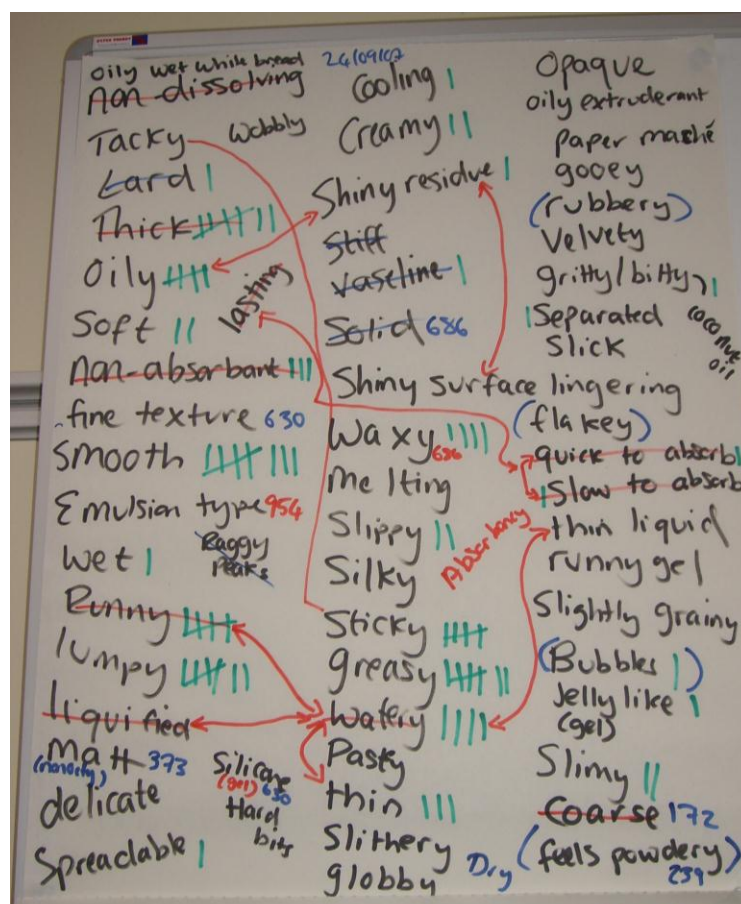 oily wet while bread
non-dissolving
Tacky
Wobbly
Lard
Thick
Oily
lasting
Soft
non-absorbant
fine texture 630
Smooth
Emulsion type 954
Wet
Raggy
Peaks
Runny
lumpy
liquified
matt 373
delicate
Silicone
(gel) 630
Hard
bits
Spreadable
24/09/07
Cooling
Creamy
Shiny residue
Stiff
Vaseline
Solid 686
Shiny surface lingering
Waxy
636
Melting
Slippy
Silky
Absorbancy
Sticky
greasy
Watery
Pasty
thin
Slithery
globby
Dry
Opaque
oily extruderant
paper maché
gooey
(rubbery)
Velvety
gritty/bitty
Separated
Slick
coconut
oil
(flakey)
quick to absorb
Slow to absorb
thin liquid
runny gel
Slightly grainy
(Bubbles)
Jelly like
(gel)
Slimy
Coarse 172
(feels powdery)
239